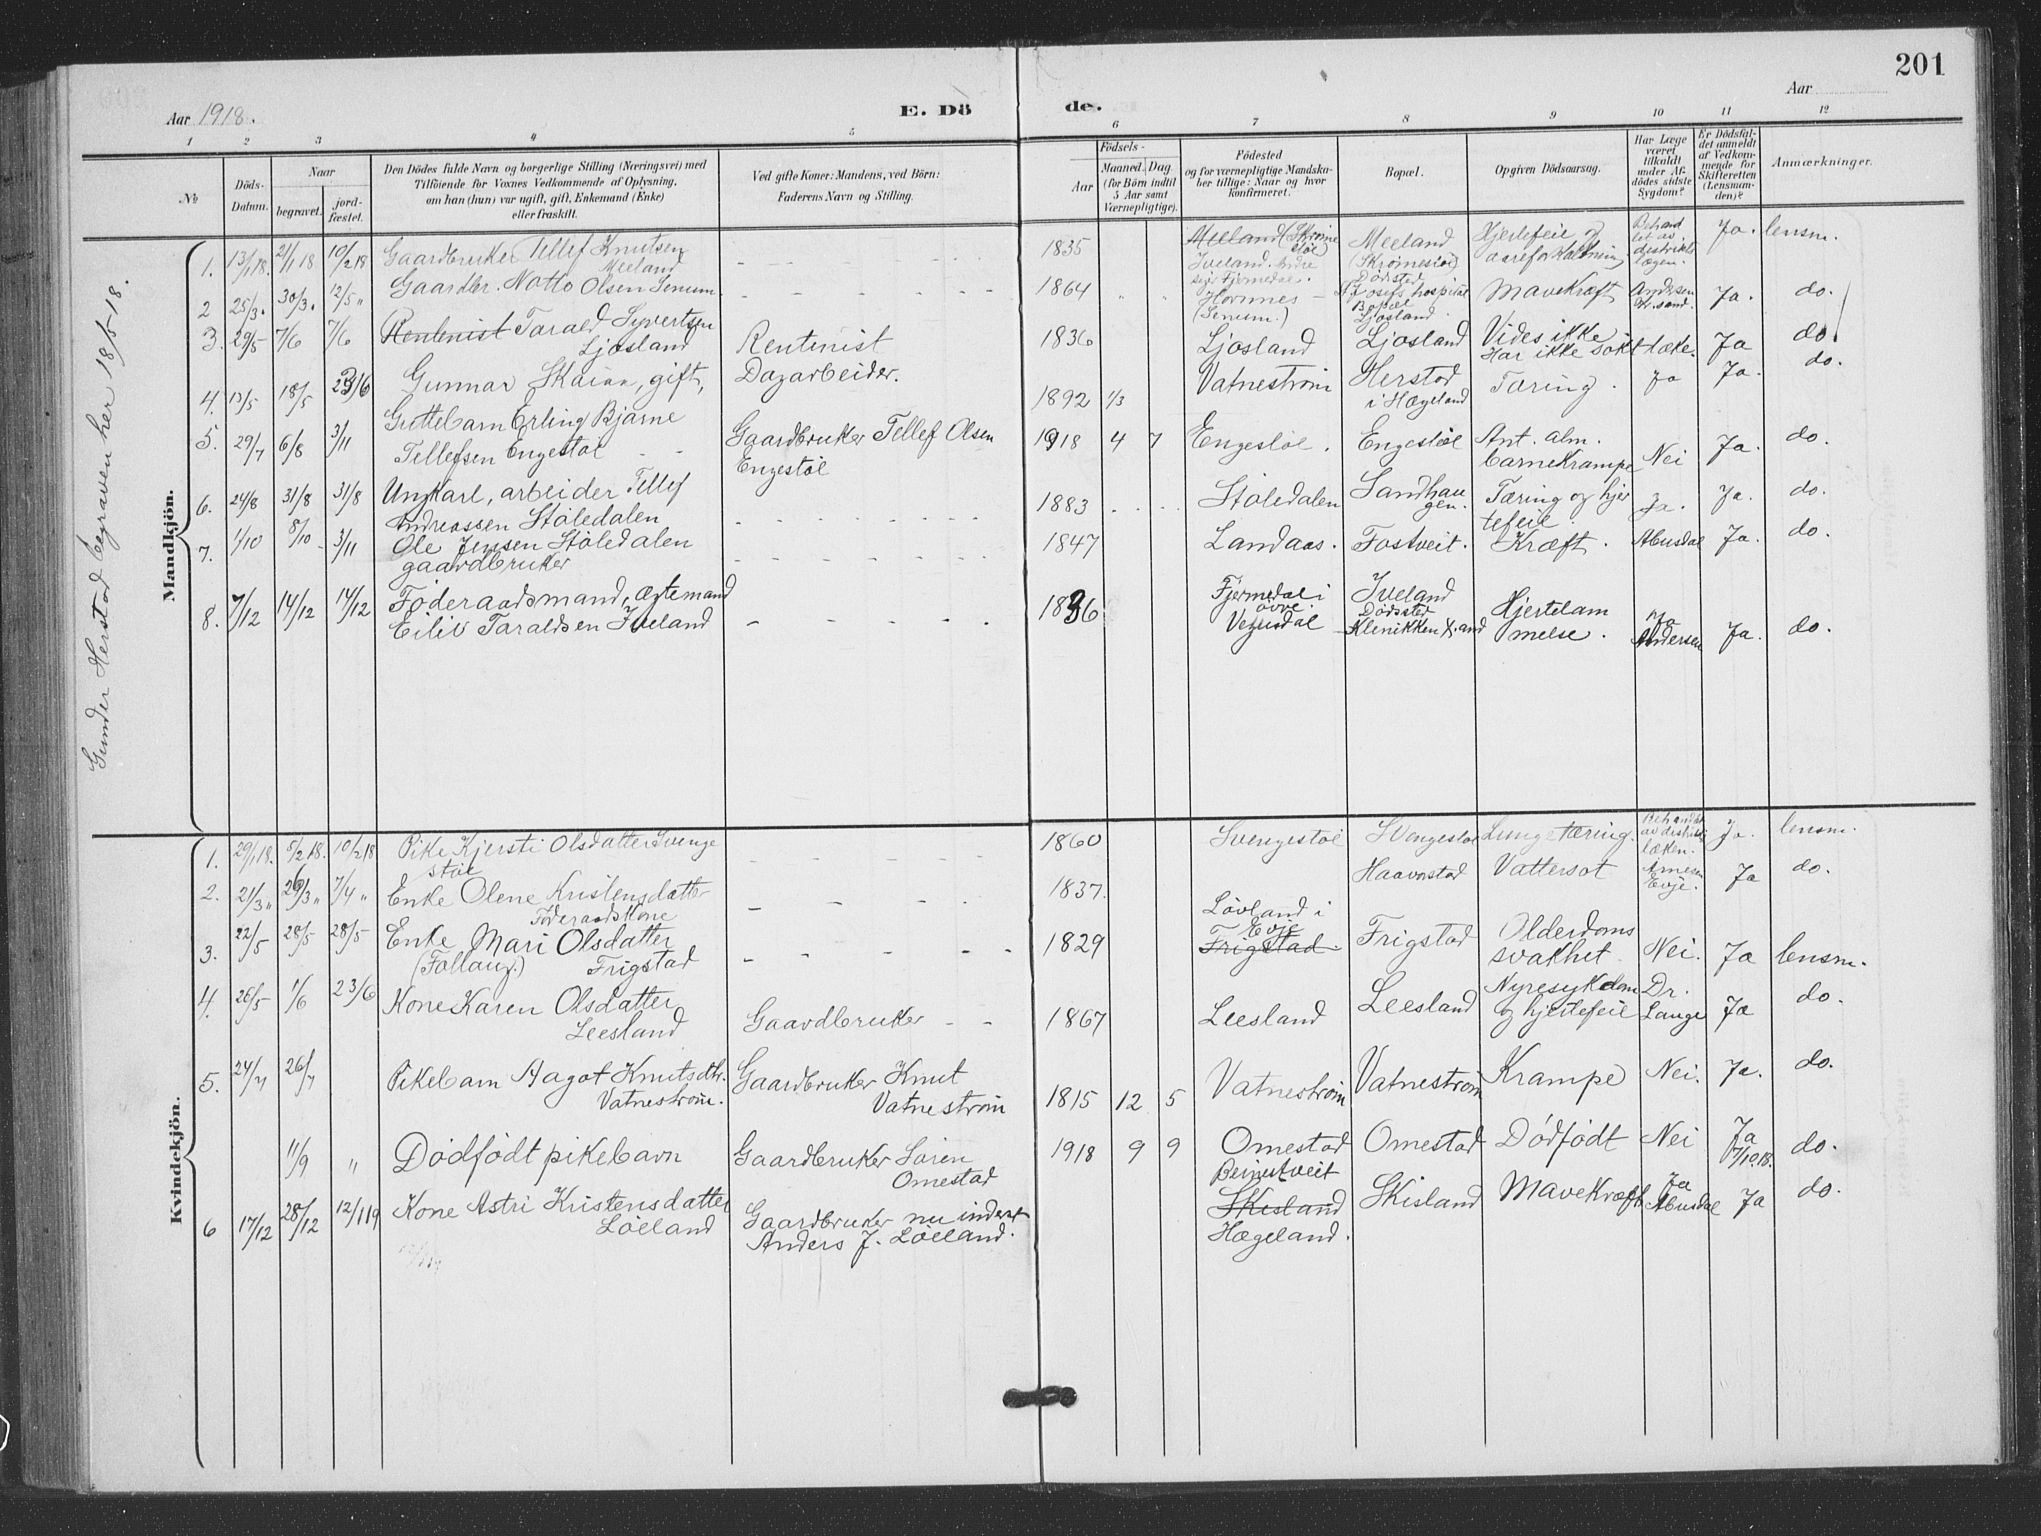 201
Aar 1918.
E. Dö
de.
Aar
1 2 3 4 5 6 7 8 9 10 11 12
No
Döds-Datum.
Naar
begravet.
jord-fæstet.
Den Dödes fulde Navn og borgerlige Stilling (Næringsvei) med
Tilföiende for Voxnes Vedkommende af Oplysning,
om han (hun) var ugift, gift, Enkemand (Enke)
eller fraskilt.
Ved gifte Koner: Mandens, ved Börn:
Faderens Navn og Stilling.
Födsels-
Aar
Maaned. Dag
(for Börn indtil
5 Aar samt
Værnepligtige).
Födested
og for værnepligtige Mandska-
ber tillige: Naar og hvor
konfirmeret.
Bopæl.
Opgiven Dödsaarsag.
Har Læge
været
tilkaldt
under Af-
dödes sidste
Sygdom?
Er Dödsfal-
det anmeldt
af Vedkom-
mende for
Skifteretten
(Lensman-
den)?
Anmærkninger.
Gunder Herstad begraven her 18/5-18.
Mandkjön.
1. 13/1 18. 21/1 18 10/2 18 Gaardbruker Tellef Knutsen
Meeland - - - - 1835 Meeland (Skrømestøl)
Iveland. Meeland (Skrømestøl) Hjertefeie og aareforkalkning Behandlet av distriktslægen. Ja. lensm.
2 25/3. 30/3. 12/5 " Gaardbr. Notto Olsen Senum - - - - 1864 " " Hornnes - (Senum.) Dødsted St Josefs hospital Bopæl Ljosland Mavekræft Andersen Kr.sand. Ja. do.
3. 29/5 7/6 7/6 Rentenist Tarald Syvertsen
Ljosland Rentenist 1836 Ljosland Ljosland Vides ikke
Har ikke søkt læke. Ja do.
4. 13/5 18/5 23/6 Gunnar Skaiaa, gift, Dagarbeider. 1892 1/3 Vatnestrøm Herstad
i Hægeland Tæring. Ja Ja. do.
5. 29/7 6/8 3/11 Guttebarn Erling Bjarne
Tellefsen Engestøl - - Gaardbruker Tellef Olsen
Engestøl 1918 4 7 Engestøl. Engestøl Ant. alm.
barnekrampe Nei Ja. do.
6. 24/8 31/8 31/8 Ungkarl, arbeider Tellef
Andreassen Støledalen - - - - 1883 Støledalen Sandhaugen. Tæring og hjertefeie. Ja. Ja. do.
7. 1/10 8/10 3/11 Ole Jensen Støledalen
gaardbruker - - - - 1847 Landaas. Fostveit. Kræft. Abusdal Ja. do.
8. 7/12 14/12 14/12 Føderaadsmand, ægtemand
Eiliv Taraldsen Iveland - - - - 1836 Fjermedal i
øvre
Vegusdal Iveland
Dødsted
Klinikken Kr.sand Hjertelammelse. Ja
Andersen Ja. do.
Kvindekjön.
1. 29/1 18. 5/2 18. 10/2 18 Pike Kjersti Olsdatter Svengestøl - - - - 1860 Svengestøl Svengestøl Lungetæring. Behandlet av distriktslæken. Ja. lensm.
2. 21/3 " 26/3 " 7/4 " Enke Olene Kristensdatter
Føderaadskone - - - 1837. Haavorstad Vattersot Evje. Ja do.
3. 22/5 28/5 28/5 Enke Mari Olsdatter
(Follaug.) Frigstad - - - - 1829 Løvland i
Evje
Frigstad Frigstad Olderdoms
svakhet. Nei. Ja lensm.
4. 26/5 1/6 23/6 Kone Karen Olsdatter
Leesland Gaardbruker - - 1867 Leesland Leesland Nyresykdom
og hjertefeie Dr.
Lange Ja do.
5. 24/7 26/7 Pikebarn Aagot Knutsdtr.
Vatnestrøm. Gaardbruker Knut
Vatnestrøm 1815 12 5 Vatnestrøm Vatnestrøm Krampe Nei. Ja. do.
11/9 " Dødfødt pikebarn Gaardbruker Søren
Omestad 1918 9 9 Omestad Omestad Dødfødt Nei Ja
7/10 18. do.
6 17/12 28/12 12/1 19 Kone Astri Kristensdatter
Løeland Gaardbruker nu inderst
Anders J. Løeland. Beinestveit
Skisland
Hægeland. Skisland Mavekræft Ja
Abusdal Ja do.